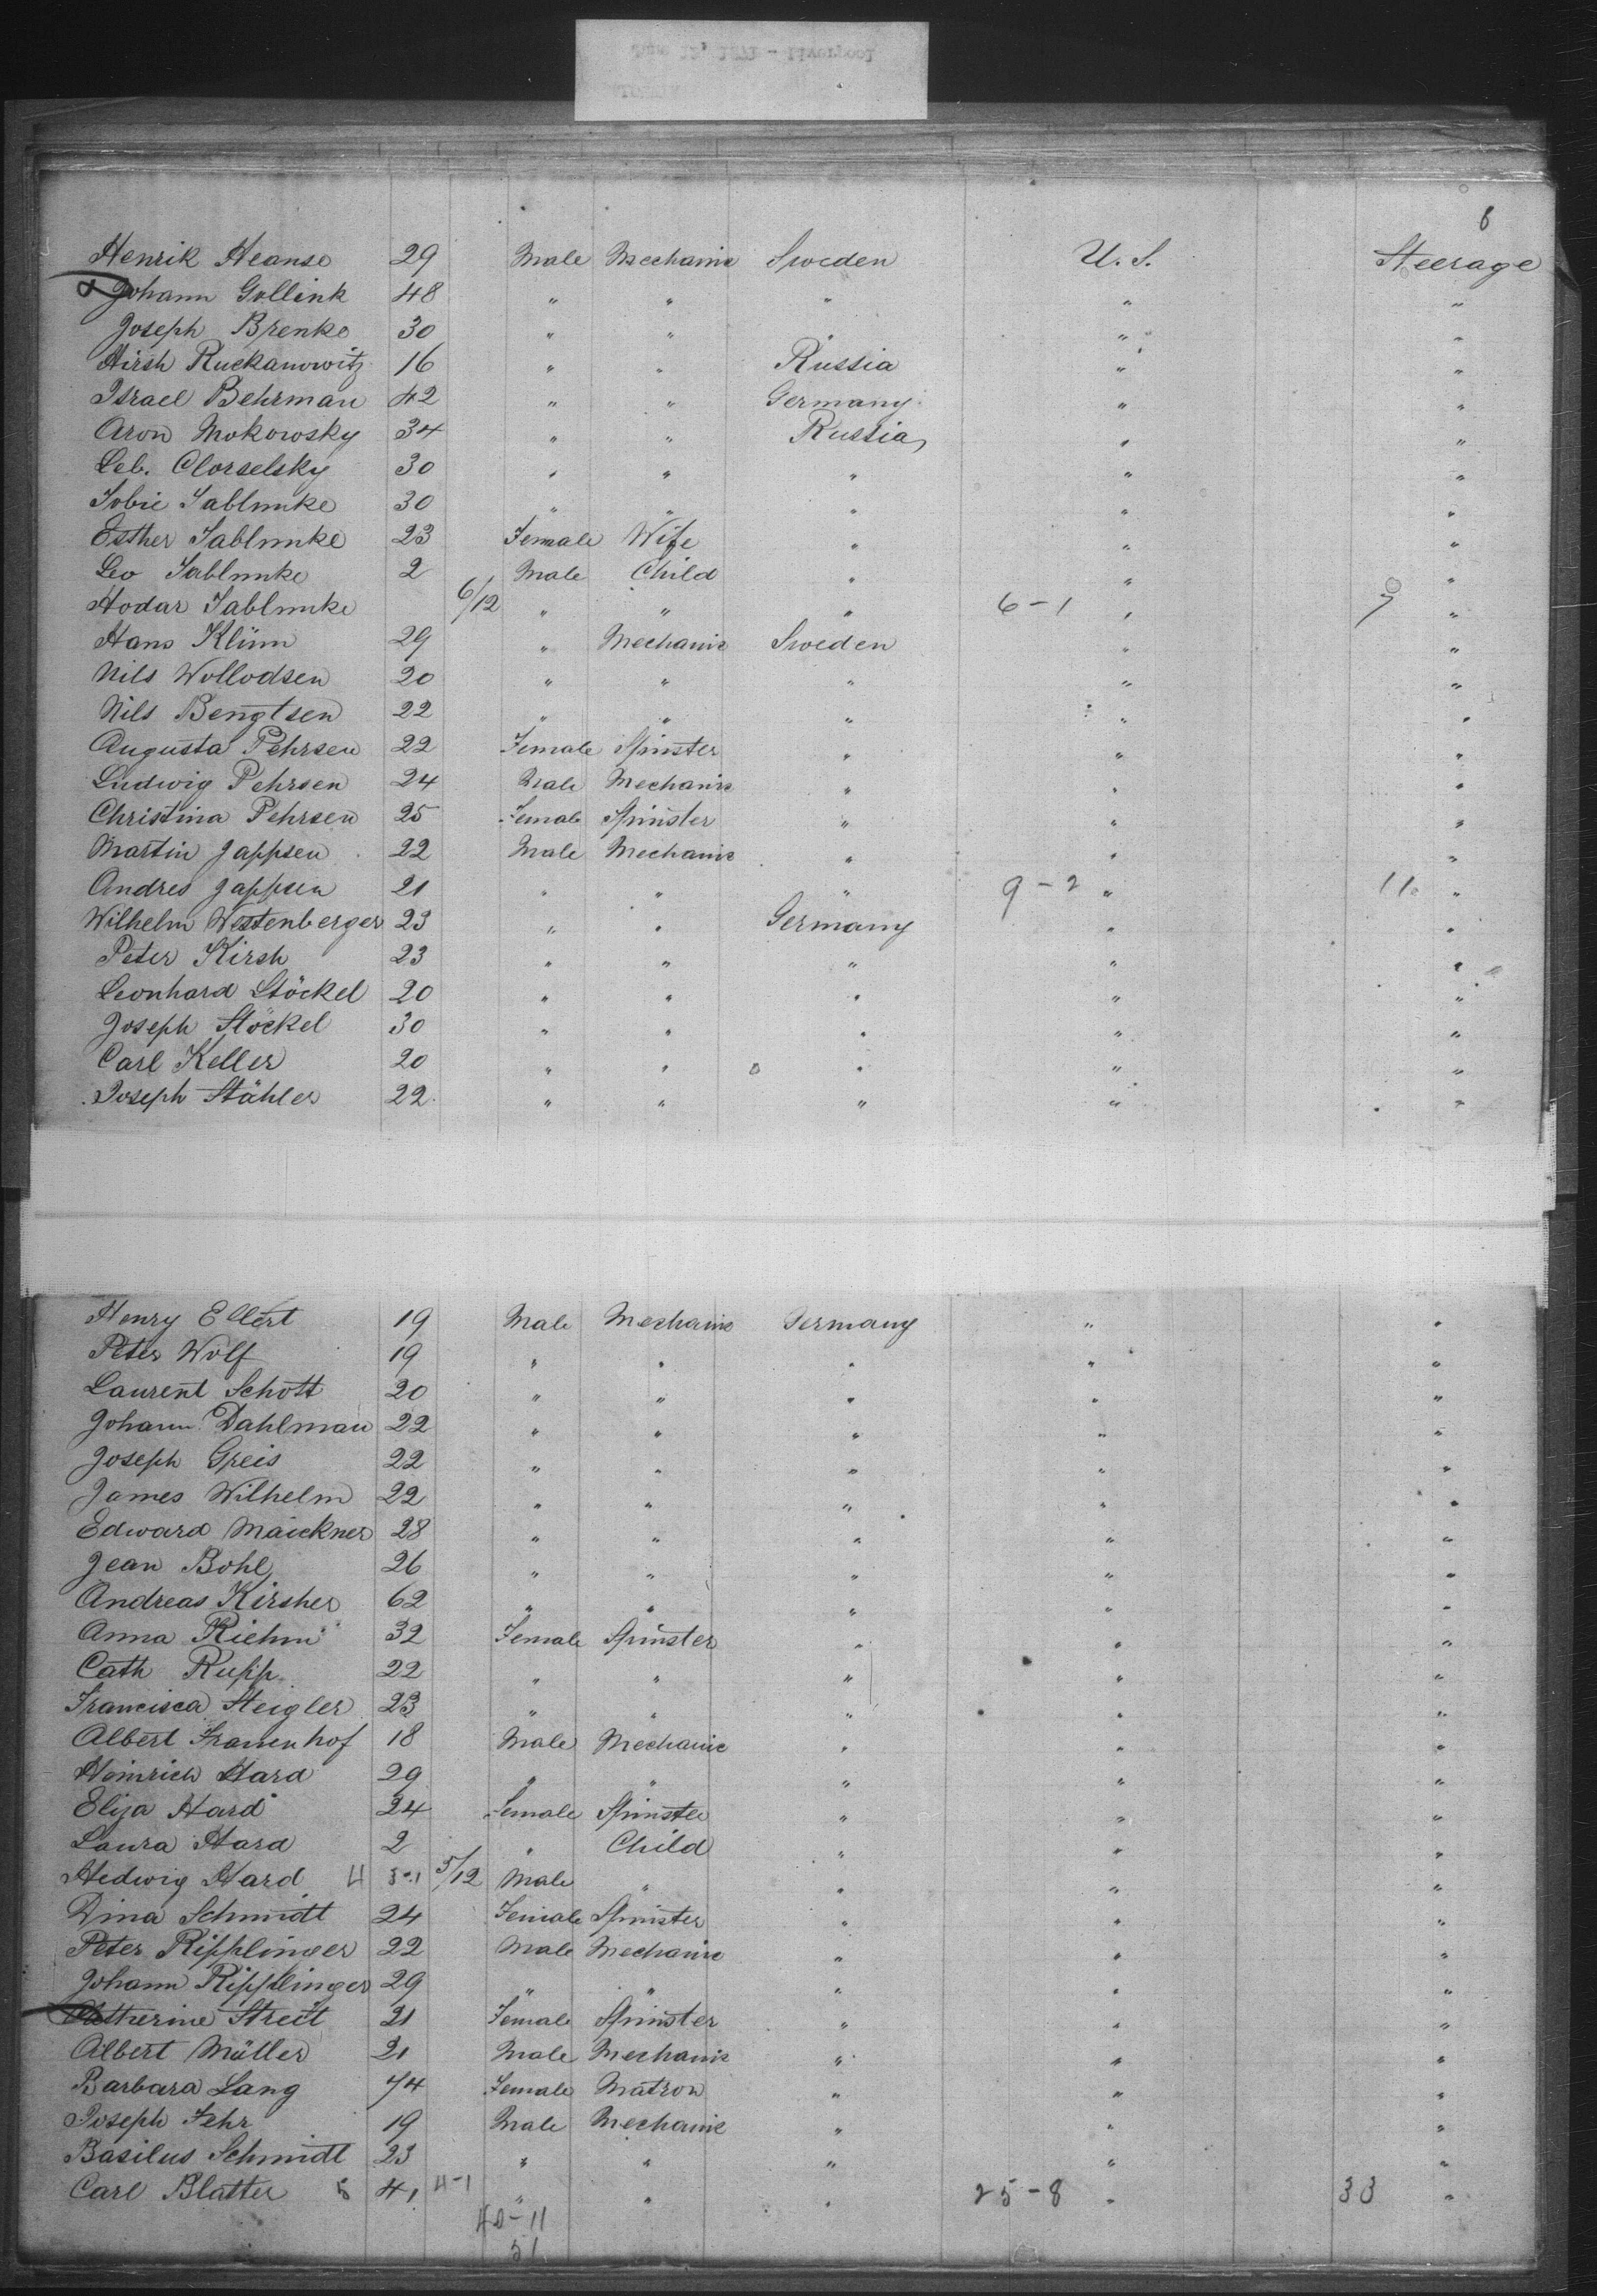 June 12, 1871 - Liverpool
6
Henrik Heanse 29 Male Mechanic Sweden U.S. Steerage
Johann Gollink 48 " " " " "
Joseph Brenke 30 " " " "
Hirsh Ruckanowitz 16 " " Russia " "
Israel Behrman 42 " " Germany " "
Aron Mokowsky 34 " " Russia " "
Leb. Clorselsky 30 " " " " "
Sobie Sablunke 30 " " " " "
Esther Sablunke 23 Female Wife " " "
Leo Sablunke 2 Male Child " " "
Hodar Sablunke 6/12 " " " 6-1 " 7 "
Hans Klinn 29 " Mechanic Sweden " "
Nils Wollodsen 20 " " " " "
Nils Bengtsen 22 " " " " "
Augusta Pehrsen 22 Female Spinster " " "
Ludwig Pehrsen 24 Male Mechanic " " "
Christina Pehrsen 25 Female Spinster " " "
Martin Jappsen 22 Male Mechanic " " "
Andres Jappsen 21 " " " 9-2 " 11 "
Wilhelm Westenberger 23 " " Germany " "
Peter Kirsh 23 " " " " "
Leonhard Stöckel 20 " " " " "
Joseph Stöckel 30 " " " " "
Carl Keller 20 " " " " "
Joseph Stähler 22 " " " " "
Henry Ellert 19 Male Mechanic Germany " "
Peter Wolf 19 " " " " "
Laurent Schott 20 " " " " "
Johann Dahlman 22 " " " " "
Joseph Greis 22 " " " " "
James Wilhelm 22 " " " " "
Edward Maickner 28 " " " " "
Jean Bohl 26 " " " " "
Andreas Kirsher 62 " " " " "
Anna Riehm 32 Female Spinster " " "
Cath Rupp 22 " " " " "
Francisca Steigler 23 " " " " "
Albert Frauenhof 18 Male Mechanic " " "
Heinrich Hard 29 " " " " "
Eliza Hard 24 Female Spinster " " "
Laura Hard 2 " Child " " "
Hedwig Hard 4 3-1 5/12 Male " " " "
Dina Schmidt 24 Female Spinster " " "
Peter Ripplinger 22 Male Mechanic " " "
Johann Ripplinger 29 " " " " "
Catherine Streit 21 Female Spinster " " "
Albert Müller 21 Male Mechanic " " "
Barbara Lang 74 Female Matron " " "
Joseph Fehr 19 Male Mechanic " " "
Basilus Schmidt 23 " " " " "
Carl Blatter 5 41 4-1 " " " 25-8 " 33 "
40-11
51